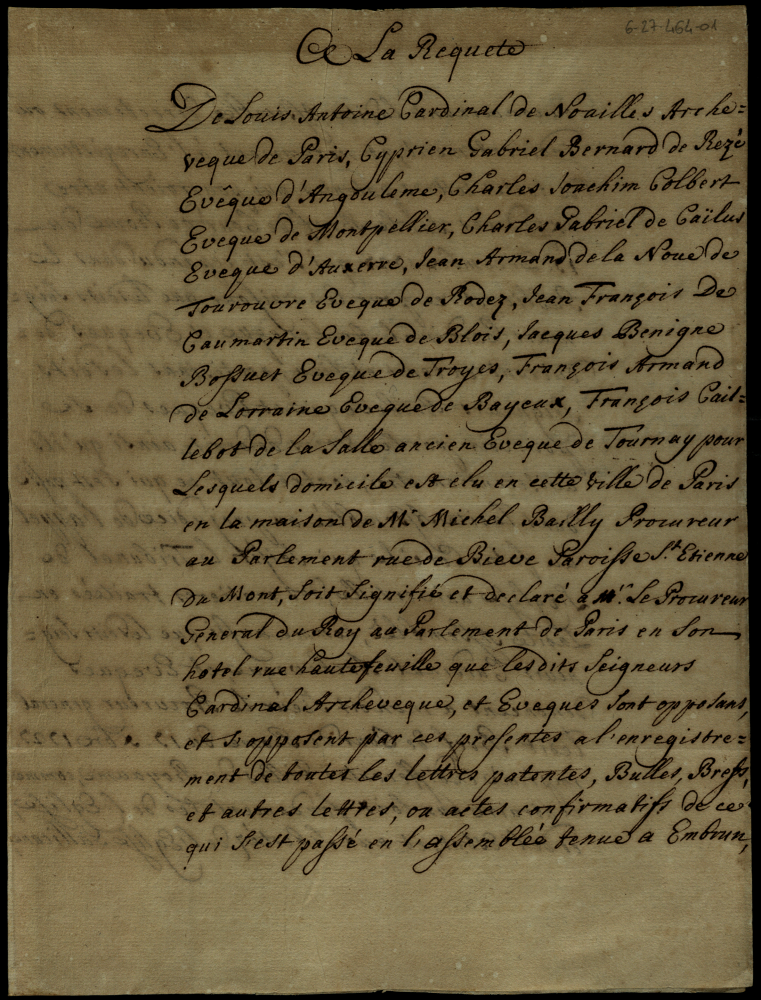 6-27-464-01
Ce La Requete
De Louis Antoine Cardinal de Noailles Arche=
veque de Paris, Cyprien Gabriel Bernard de Rezé
Evêque d'Angouleme, Charles Joachim Colbert
Eveque de Montpellier, Charles Gabriel de Caïlus
Eveque d'Auxerre, Jean Armand de la Noue de
Tourouvre Eveque de Rodez, Jean François De
Caumartin Eveque de Blois, Jacques Benigne
Bossuet Eveque de Troyes, François Armand
de Lorraine Eveque de Bayeux, François Cail=
lebot de la Salle ancien Eveque de Tournay pour
Lesquels domicile est elu en cette ville de Paris
en la maison de Me Michel Bailly Procureur
au Parlement rue de Bieve Paroisse St. Etienne
du Mont, soit signifié et declaré a Mr. Le Procureur
General du Roy au Parlement de Paris en son
hotel rue hautefeuille que lesdits Seigneurs
Cardinal Archeveque, et Eveques sont opposans,
et s'opposent par ces presentes a l'enregistre=
ment de toutes les lettres patentes, Bulles, Brefs,
et autres lettres, ou actes confirmatifs de ce
qui s'est passé en l'assemblée tenue a Embrun,